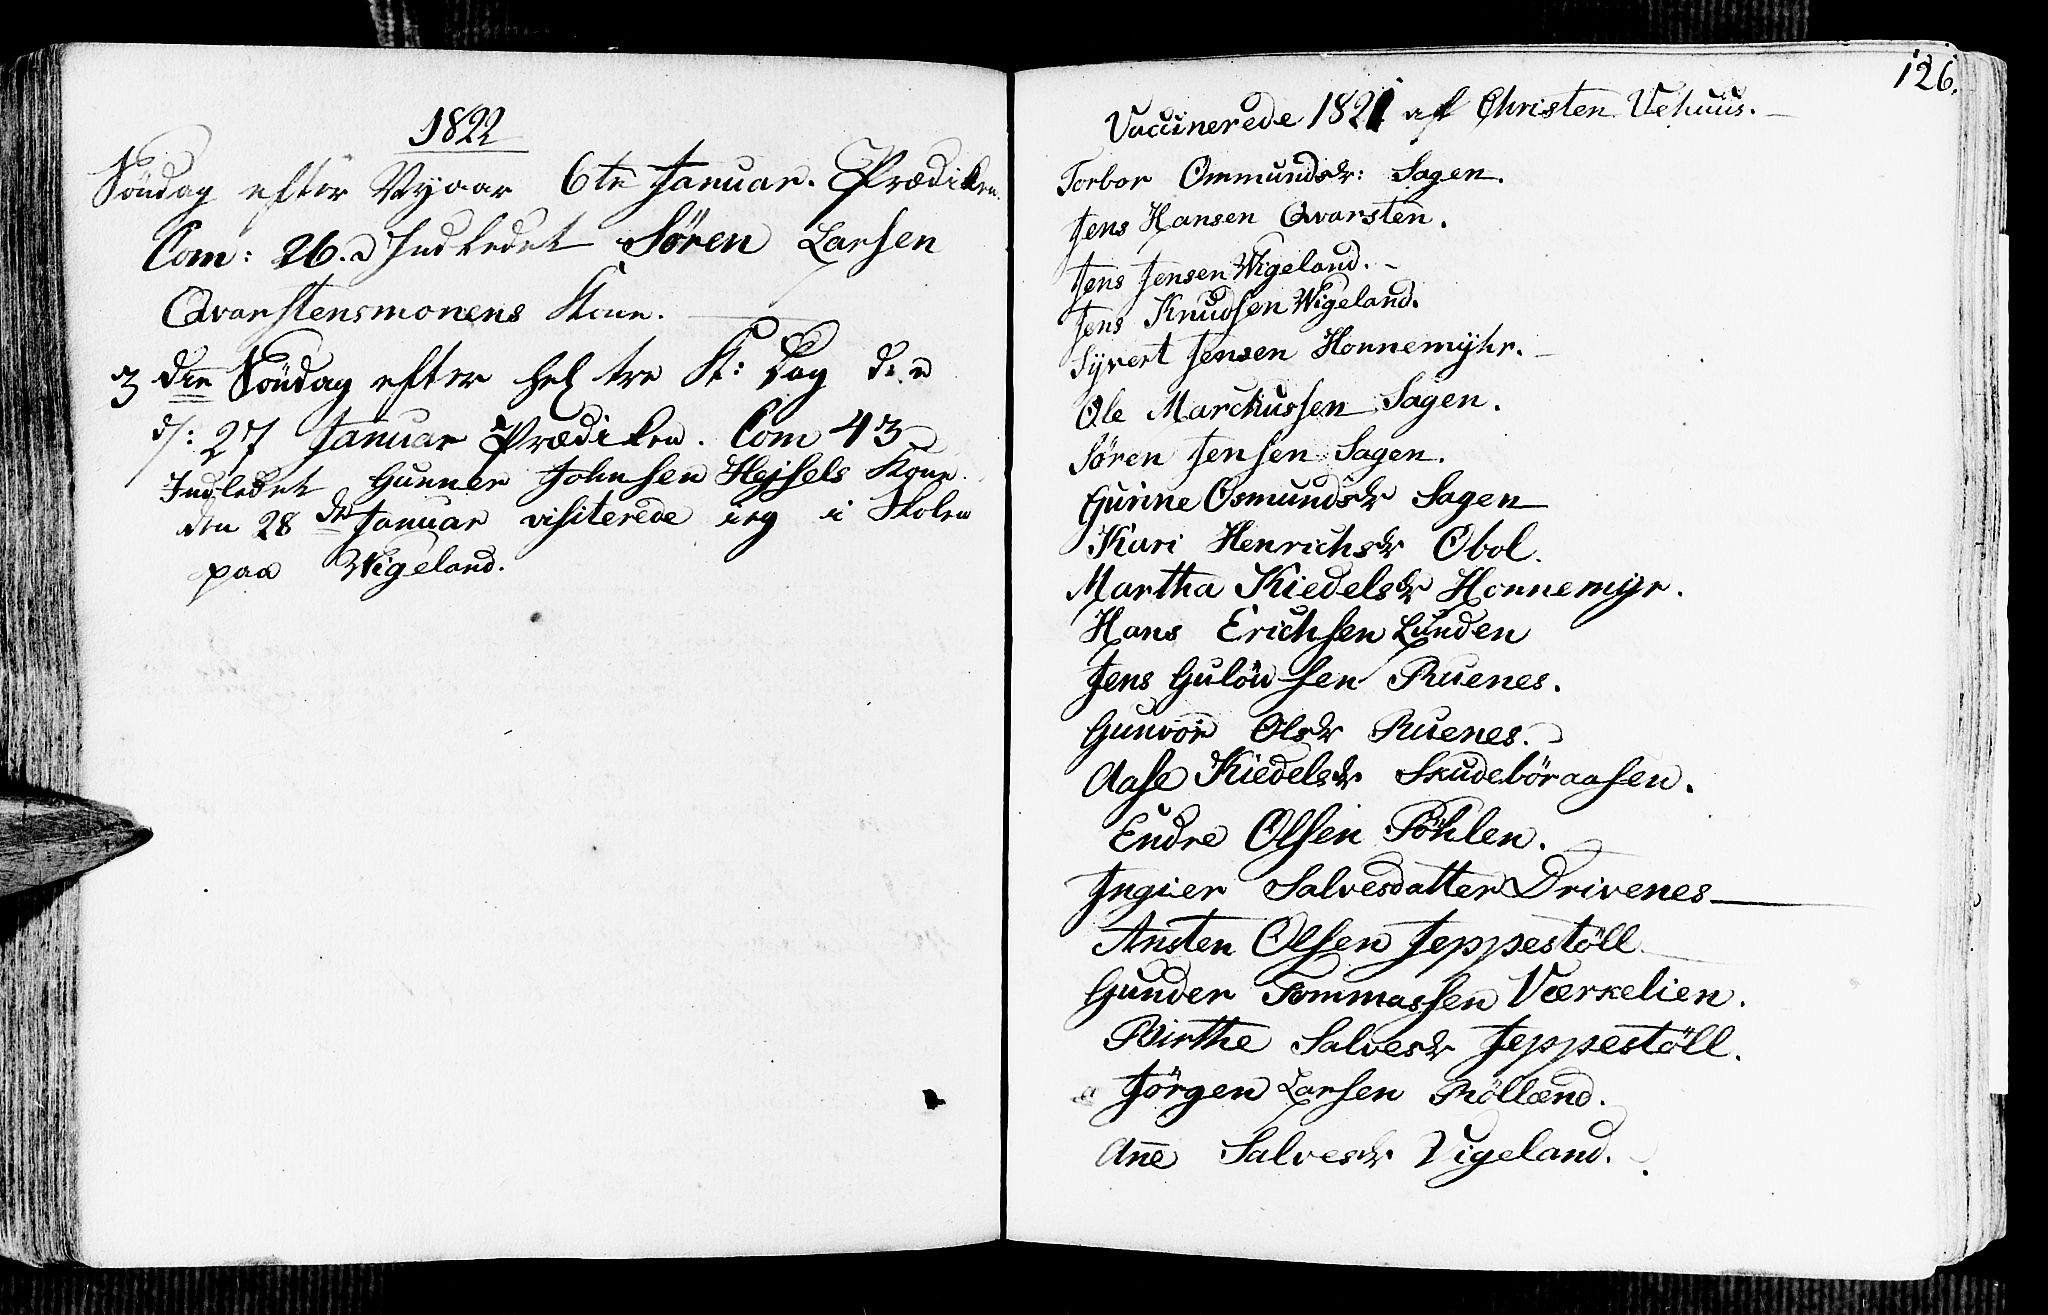 1822
Söndag efter Nyaar 6te Januar. Prædiken.
Com: 26. Indledet Søren Larsen
Qvarstensmonens Kone.
3die Söndag efter hel tre K: Dag d. e
d: 27 Januar Prædiken. Com 43
Indledet Gunner Johnsen Hejsels Kone
den 28de Januar visiterede ieg i Skolen
paa Wigeland.
126.
Vaccinerede 1821 af Christen Vehuus.
Torbor Ommundsdr: Sagen.
Jens Hansen Qvarsten.
Jens Jensen Wigeland.
Jens Knudsen Wigeland.
Syvert Jensen Honnemyhr.
Ole Marckussen Sagen.
Søren Jensen Sagen.
Gurine Osmundsdr Sagen
Kari Henrichsdr Obol.
Martha Kiedelsdr Honnemyr.
Hans Erichsen Lunden
Jens Gulöusen Ruenes.
Gunvor Olsdr Ruenes.
Aase Kiedelsdr Skudeböraasen.
Endre Olsen Röhlen.
Ingier Salvesdatter Drivenes
Ansten Olsen Jeppestöll
Gunder Tommassen Værkelien.
Birthe Salvesdr Jeppestöll.
Jörgen Larsen Röllænd.
Ane Salvesdr Vigeland.